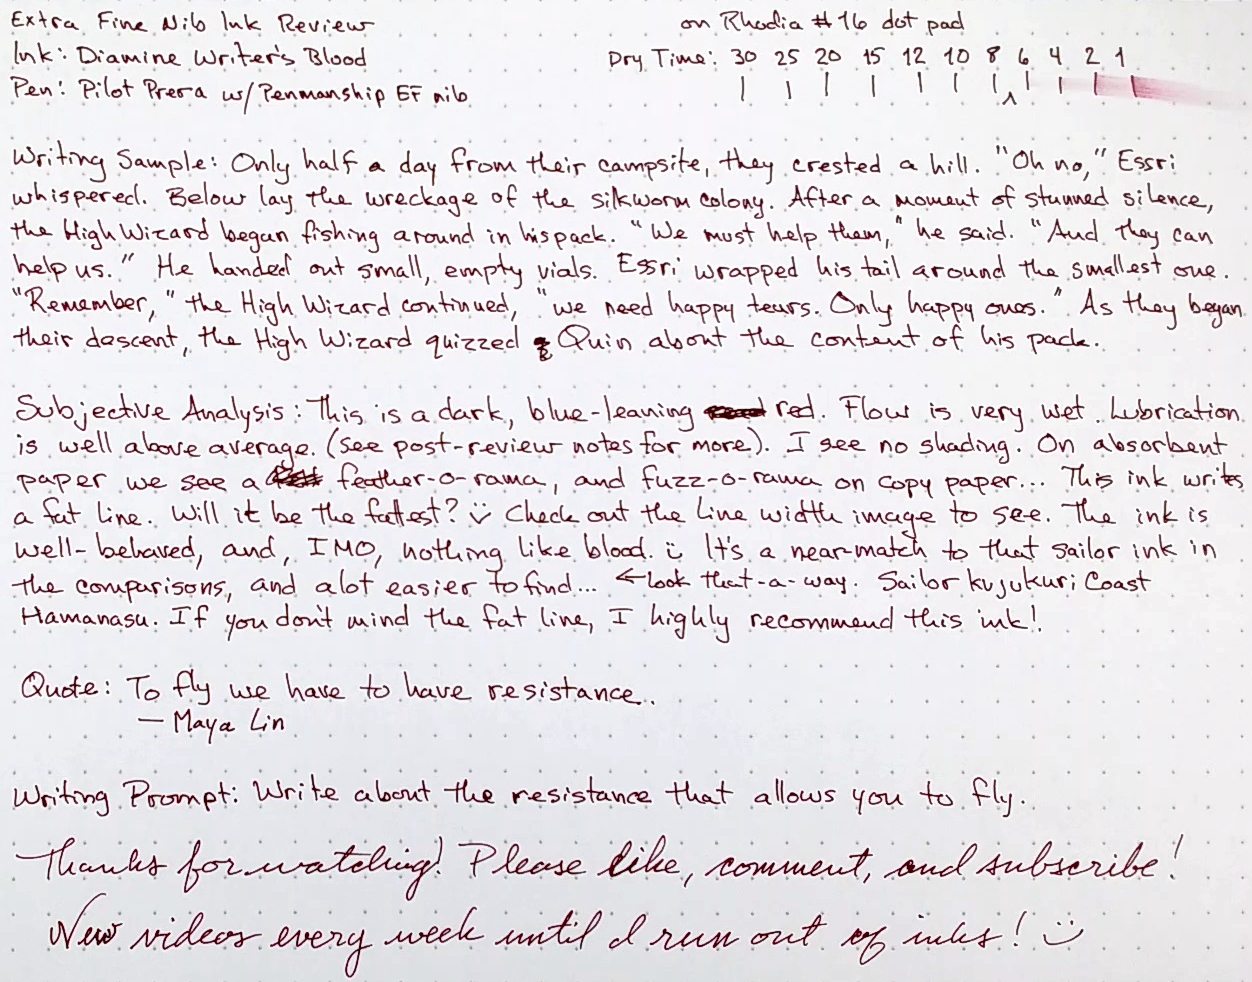 Extra Fine Nib Ink Review
on Rhodia #16 dot pad
Ink: Diamine Writer's Blood
Dry Time: 30 25 20 15 12 10 8 6 4 2 1
Pen: Pilot Prera w/Penmanship EF nib
Writing Sample: Only half a day from their campsite, they crested a hill. "Oh no," Essri
whispered. Below lay the wreckage of the silkworm colony. After a moment of stunned silence,
the High Wizard began fishing around in his pack. "We must help them," he said. "And they can
help us." He handed out small, empty vials. Essri wrapped his tail around the smallest one.
"Remember," the High Wizard continued, "we need happy tears. Only happy ones." As they began
their descent, the High Wizard quizzed Quin about the content of his pack.
Subjective Analysis: This is a dark, blue-leaning red. Flow is very wet. Lubrication
is well above average. (see post-review notes for more). I see no shading. On absorbent
paper we see a feather-o-rama, and fuzz-o-rama on copy paper... This ink writes
a fat line. Will it be the fattest? :) Check out the line width image to see. The ink is
well-behaved, and, IMO, nothing like blood. :) It's a near-match to that sailor ink in
the comparisons, and alot easier to find... ←Look that-a-way. Sailor kujukuri Coast
Hamanasu. If you don't mind the fat line, I highly recommend this ink!
Quote: To fly we have to have resistance..
— Maya Lin
Writing Prompt: Write about the resistance that allows you to fly.
Thanks for watching! Please like, comment, and subscribe!
New videos every week until I run out of inks! :)